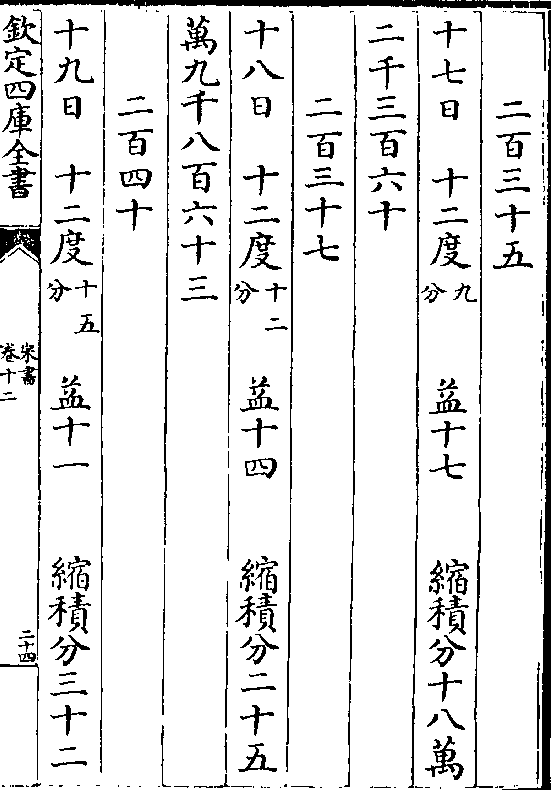 二百三十五
十七日　十二度九分　益十七　縮積分十八萬
二千三百六十
二百三十七
十八日　十二度十二分　益十四　縮積分二十五
萬九千八百六十三
二百四十
十九日　十二度十五分　益十一　縮積分三十二
欽定四庫全書
宋書
卷十二
二十四